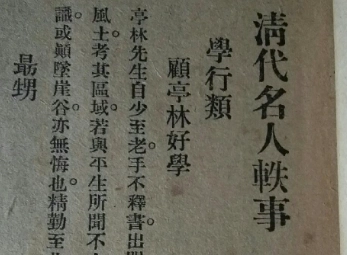 清代名人軼事
學行類
顧亭林好學
亭林先生自少至老。手不釋書。出
風土。考其區域。若與平生所聞不
識。或顛墜崖谷。亦無悔也。精勤至
最甥